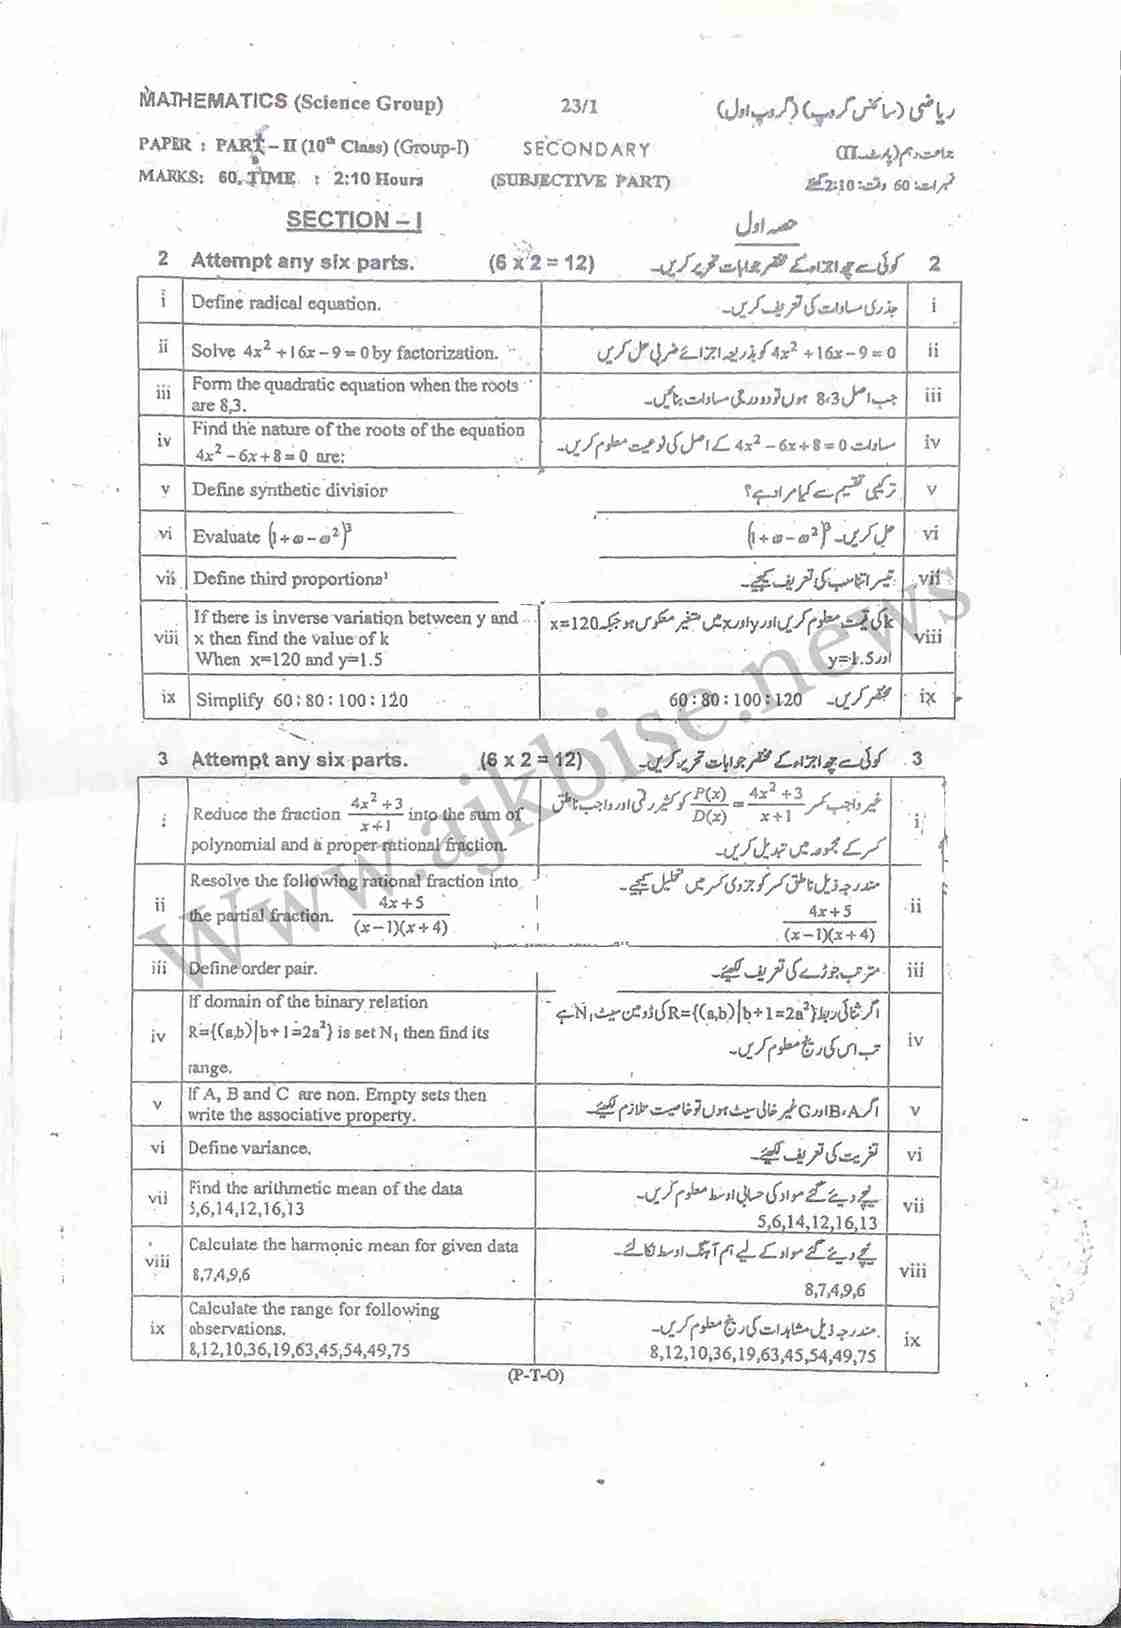 MATHEMATICS (Science Group) 23/1 ریاضی (سائنس گروپ) (گروپ اول)
PAPER : PART – II (10th Class) (Group-I) SECONDARY جماعت دہم (پارٹ-II)
MARKS: 60. TIME : 2:10 Hours (SUBJECTIVE PART) نمبرات: 60 وقت: 2:10 گھنٹے
SECTION – I حصہ اول
2 Attempt any six parts. (6 x 2 = 12) کوئی سے چھ اجزاء کے مختصر جوابات تحریر کریں۔ 2
i Define radical equation. جذری مساوات کی تعریف کریں۔ i
ii Solve 4x² +16x – 9 = 0 by factorization. 4x² +16x – 9 = 0 کو بذریعہ اجزائے ضربی حل کریں ii
iii Form the quadratic equation when the roots
are 8,3. جب اصل 8،3 ہوں تو دو درجی مساوات بنائیں۔ iii
iv Find the nature of the roots of the equation
4x² – 6x + 8 = 0 are: مساوات 4x² – 6x + 8 = 0 کے اصل کی نوعیت معلوم کریں۔ iv
v Define synthetic division ترکیبی تقسیم سے کیا مراد ہے؟ v
vi Evaluate (1+ω–ω²)³ حل کریں۔ (1+ω–ω²)³ vi
vii Define third proportional تیسرا تناسب کی تعریف کیجیے۔ vii
viii If there is inverse variation between y and
x then find the value of k
When x=120 and y=1.5
k کی قیمت معلوم کریں اور y اور x میں تغیر معکوس ہو جبکہ x=120
اور y=1.5 viii
ix Simplify 60 : 80 : 100 : 120 مختصر کریں۔ 60 : 80 : 100 : 120 ix
3 Attempt any six parts. (6 x 2 = 12) کوئی سے چھ اجزاء کے مختصر جوابات تحریر کریں۔ 3
i Reduce the fraction (4x² +3)/(x+1) into the sum of
polynomial and a proper rational fraction.
غیر واجب کسر P(x)/D(x) = (4x² +3)/(x+1) کو کثیر رقمی اور واجب ناطق
کسر کے مجموعہ میں تبدیل کریں۔ i
ii Resolve the following rational fraction into
the partial fraction. (4x+5)/((x–1)(x+4))
مندرجہ ذیل ناطق کسر کو جزوی کسر میں تحلیل کیجیے۔
(4x+5)/((x–1)(x+4)) ii
iii Define order pair. مترتب جوڑے کی تعریف لکھیے۔ iii
iv If domain of the binary relation
R={(a,b)|b+1=2a²} is set N, then find its
range.
اگر ثنائی ربط R={(a,b)|b+1=2a²} کی ڈومین سیٹ N، ہے
تب اس کی رینج معلوم کریں۔ iv
v If A, B and C are non. Empty sets then
write the associative property.
اگر A،B اور C غیر خالی سیٹ ہوں تو خاصیت تلازم لکھیے۔ v
vi Define variance. تغیریت کی تعریف لکھیے۔ vi
vii Find the arithmetic mean of the data
5,6,14,12,16,13
نیچے دیئے گئے مواد کی حسابی اوسط معلوم کریں۔
5,6,14,12,16,13 vii
viii Calculate the harmonic mean for given data
8,7,4,9,6
نیچے دیئے گئے مواد کے لیے ہم آہنگ اوسط نکالئے۔
8,7,4,9,6 viii
ix Calculate the range for following
observations.
8,12,10,36,19,63,45,54,49,75
مندرجہ ذیل مشاہدات کی رینج معلوم کریں۔
8,12,10,36,19,63,45,54,49,75 ix
(P-T-O)
www.ajkbise.news